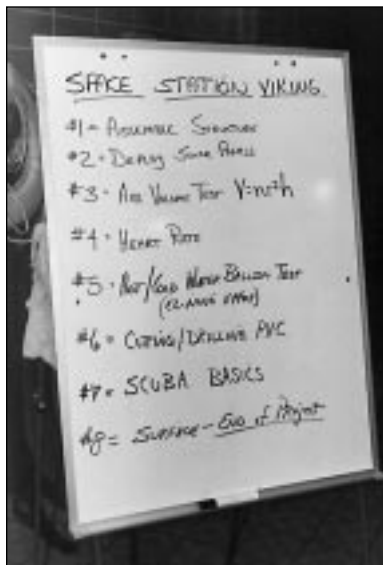 SPACE STATION VIKING
#1 = ASSEMBLE STRUCTURE
#2 = DEPLOY SOLAR PANELS
#3 - VOLUME TEST V=πr²h
#4 - HEART RATE
#5 - HOT/COLD WATER BALLOON TEST
#6 = CUTTING/DRILLING PVC
#7 = SCUBA BASICS
#8 = SURFACE - END OF PROJECT